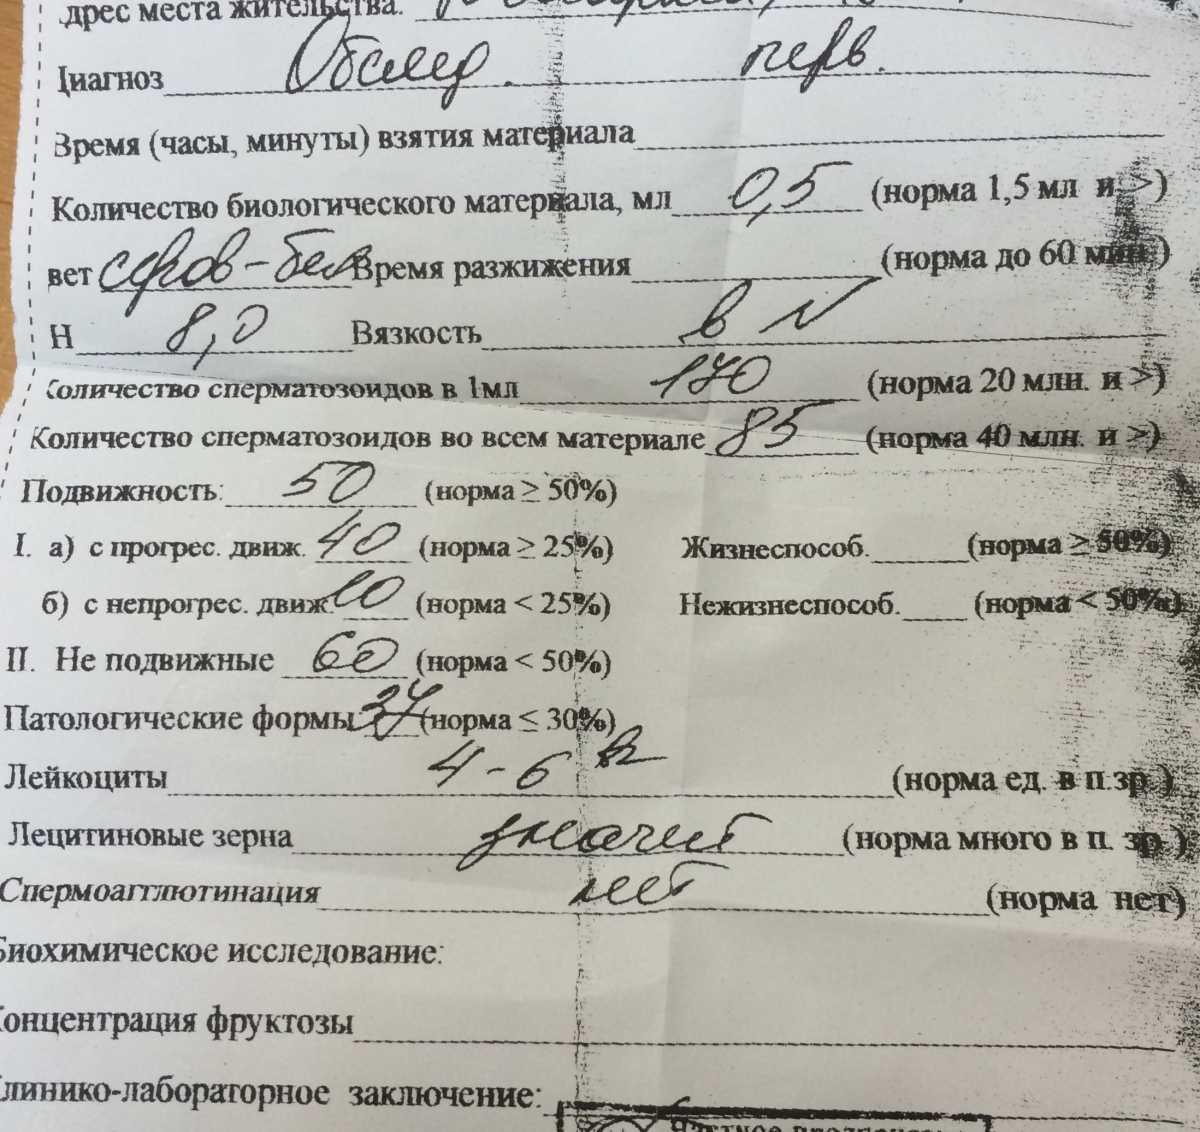 дрес места жительства.
Диагноз Обслед. перв.
Время (часы, минуты) взятия материала
Количество биологического материала, мл 0,5 (норма 1,5 мл и >)
вет серов-бел Время разжижения (норма до 60 мин.)
Н 8,0 Вязкость в N
Количество сперматозоидов в 1мл 170 (норма 20 млн. и >)
Количество сперматозоидов во всем материале 85 (норма 40 млн. и >)
Подвижность: 50 (норма ≥ 50%)
I. а) с прогрес. движ. 40 (норма ≥ 25%) Жизнеспособ. (норма ≥ 50%)
б) с непрогрес. движ. 10 (норма < 25%) Нежизнеспособ. (норма < 50%)
II. Не подвижные 60 (норма < 50%)
Патологические формы 37 (норма ≤ 30%)
Лейкоциты 4-6 (норма ед. в п.зр.)
Лецитиновые зерна значит (норма много в п. зр.)
Спермоагглютинация нет (норма нет)
Биохимическое исследование:
Концентрация фруктозы
Клинико-лабораторное заключение: